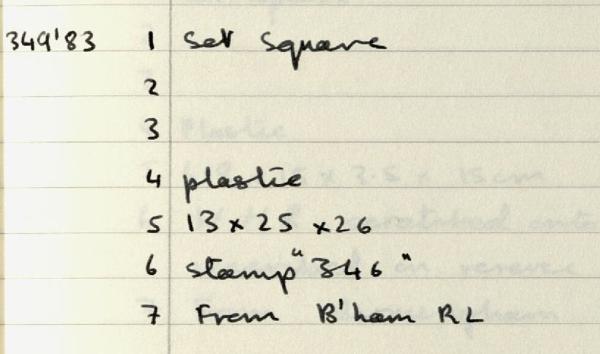 349'83 1 Set Square
2
3
4 plastic
5 13 x 25 x 26
6 stamp "346"
7 From B'ham RL